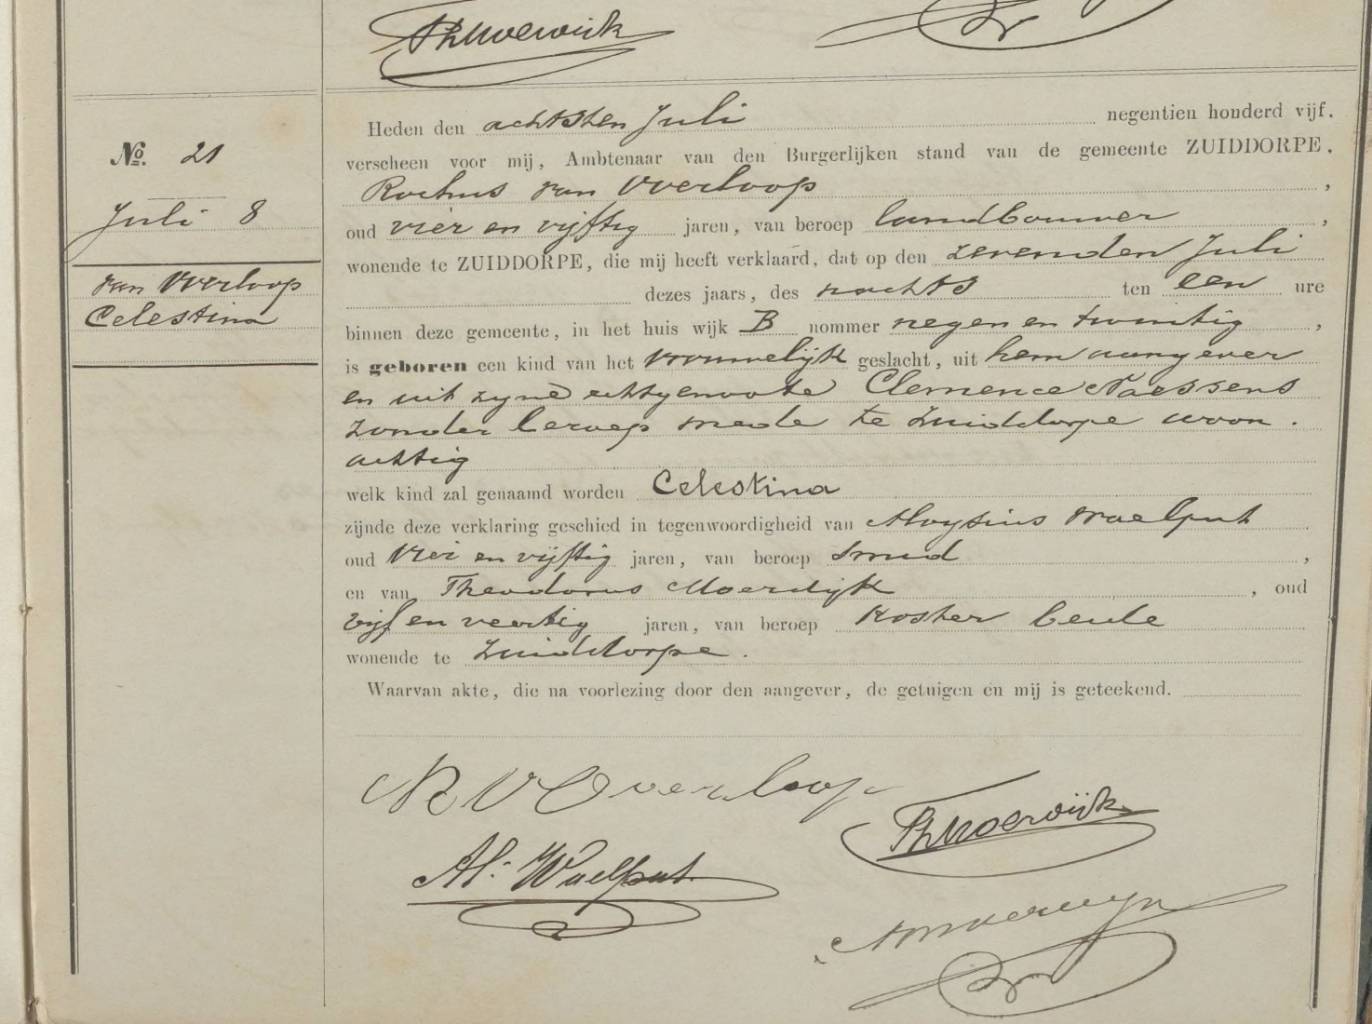 Heden den achtsten Juli negentien honderd vijf.
No. 21
verscheen voor mij, Ambtenaar van den Burgerlijken stand van de gemeente ZUIDDORPE.
Rochus van Overloop,
Juli 8
oud vier en vijftig jaren, van beroep landbouwer,
wonende te ZUIDDORPE, die mij heeft verklaard, dat op den zevenden Juli
van Overloop
Celestina
dezes jaars, des nachts ten een ure
binnen deze gemeente, in het huis wijk B nommer negen en twintig,
is geboren een kind van het vrouwelijk geslacht, uit hem aangever
en uit zijne echtgenoote Clemence Naessens
zonder beroep mede te Zuiddorpe woon.
achtig
welk kind zal genaamd worden Celestina
zijnde deze verklaring geschied in tegenwoordigheid van Aloysius Waelput
oud vier en vijftig jaren, van beroep smid,
en van Theodorus Moerdijk, oud
vijf en veertig jaren, van beroep koster beide
wonende te Zuiddorpe.
Waarvan akte, die na voorlezing door den aangever, de getuigen en mij is geteekend.
R V Overloop
Al. Waelput